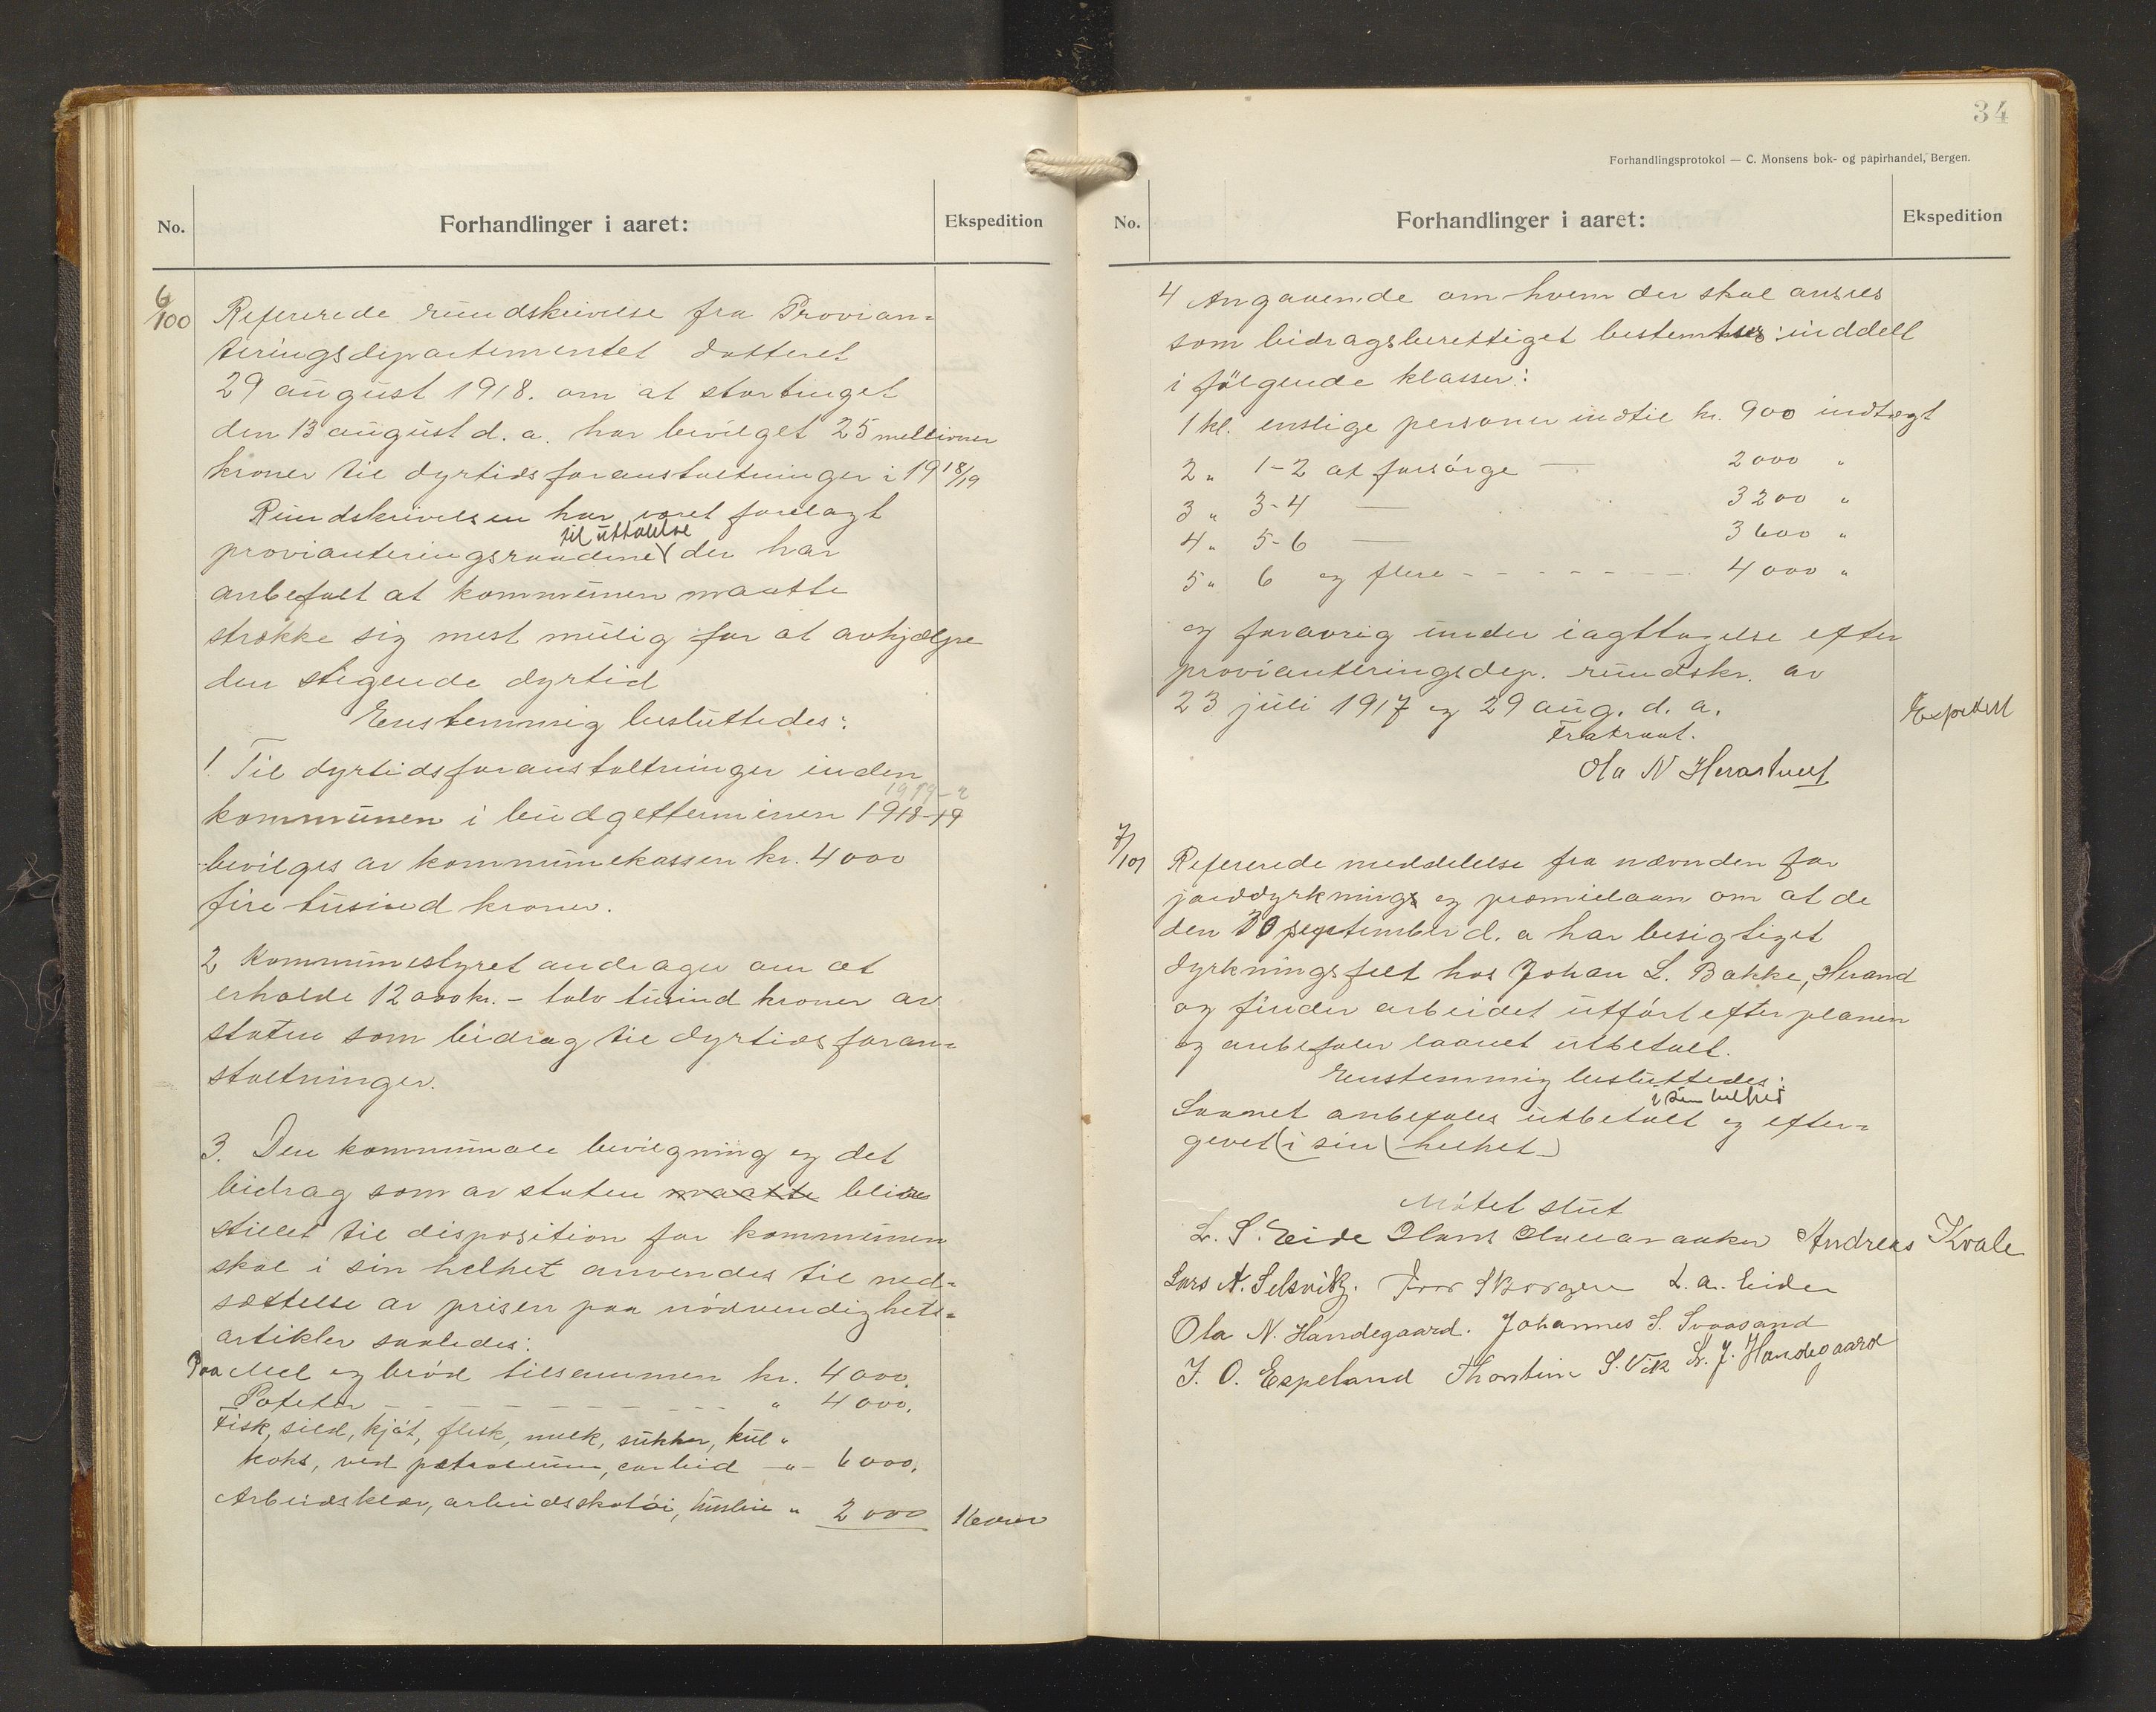 No.
Forhandlinger i aaret:
Ekspedition
6/100
Refererede rundskrivelse fra Provian=
teringsdepartementet datteret
29 august 1918. om at stortinget
den 13 august d. a. har bevilget 25 millioner
kroner til dyrtidsforanstaltninger i 1918/19
Rundskrivelsen har været forelagt
til uttalelse
provianteringsraadene der har
anbefalt at kommunen maatte
strække sig mest mulig for at avhjælpe
den stigende dyrtid
Enstemmig besluttedes:
1 Til dyrtidsforanstaltninger inden
kommunen i budgetterminen 1918-19
bevilges av kommunekassen kr. 4000
fire tusind kroner.
2 Kommunestyret andrager om at
erholde 12000 kr. - tolv tusind kroner av
staten som bidrag til dyrtidsforan=
staltninger.
3. Den kommunale bevilgning og det
bidrag som av staten maatte blives
stillet til disposition for kommunen
skal i sin helhet anvendes til ned=
sættelse av prisen paa nödvendighets=
artikler saaledes:
Paa Mel og bröd tilsammen kr. 4000.
Poteter - - - - - - - - " 4000.
Fisk, sild, kjöt, flesk, melk, sukker, kul "
koks, ved petroleum, carbid -"- 6000.
Arbeidsklær, arbeidsskotöi, " 2000
34
Forhandlingsprotokol — C. Monsens bok- og papirhandel, Bergen.
No.
Forhandlinger i aaret:
Ekspedition
4 Angaaende om hvem der skal ansees
som bidragsberettiget bestemtes: inddelt
i fölgende klasser:
1 kl. enslige personer indtil kr. 900 indtægt
2 " 1-2 at forsörge — 2000 "
3 " 3-4 — 3200 "
4 " 5-6 — 3600 "
5 " 6 og flere - - - - - - 4000 "
og foravrig under iagttagelse efter
provianteringsdep. rundskr. av
23 juli 1917 og 29 aug. d. a.
Expedert
Fratraat.
Ola N Herastveit
7/101
Refererede meddelelse fra nævnden for
jorddyrknings og præmielaan om at de
den 30 september d. a har besigtiget
dyrkningsfelt hos Johan L. Bakke, Herand
og finder arbeidet utfört efter planen
og anbefaler laanet utbetalt.
Enstemmig besluttedes:
i sin helhed
Laanet anbefales utbetalt og efter=
gevet (i sin helhet)
Mötet slut
L. S. Eide Andreas Kvale
Lars A. Selsvik. Ivar Skorgen L. a. Eide
Ola N. Handegaard. Johannes S. Svaasand
J. O. Espeland Thorstein S. Vik Sr. J. Handegaard